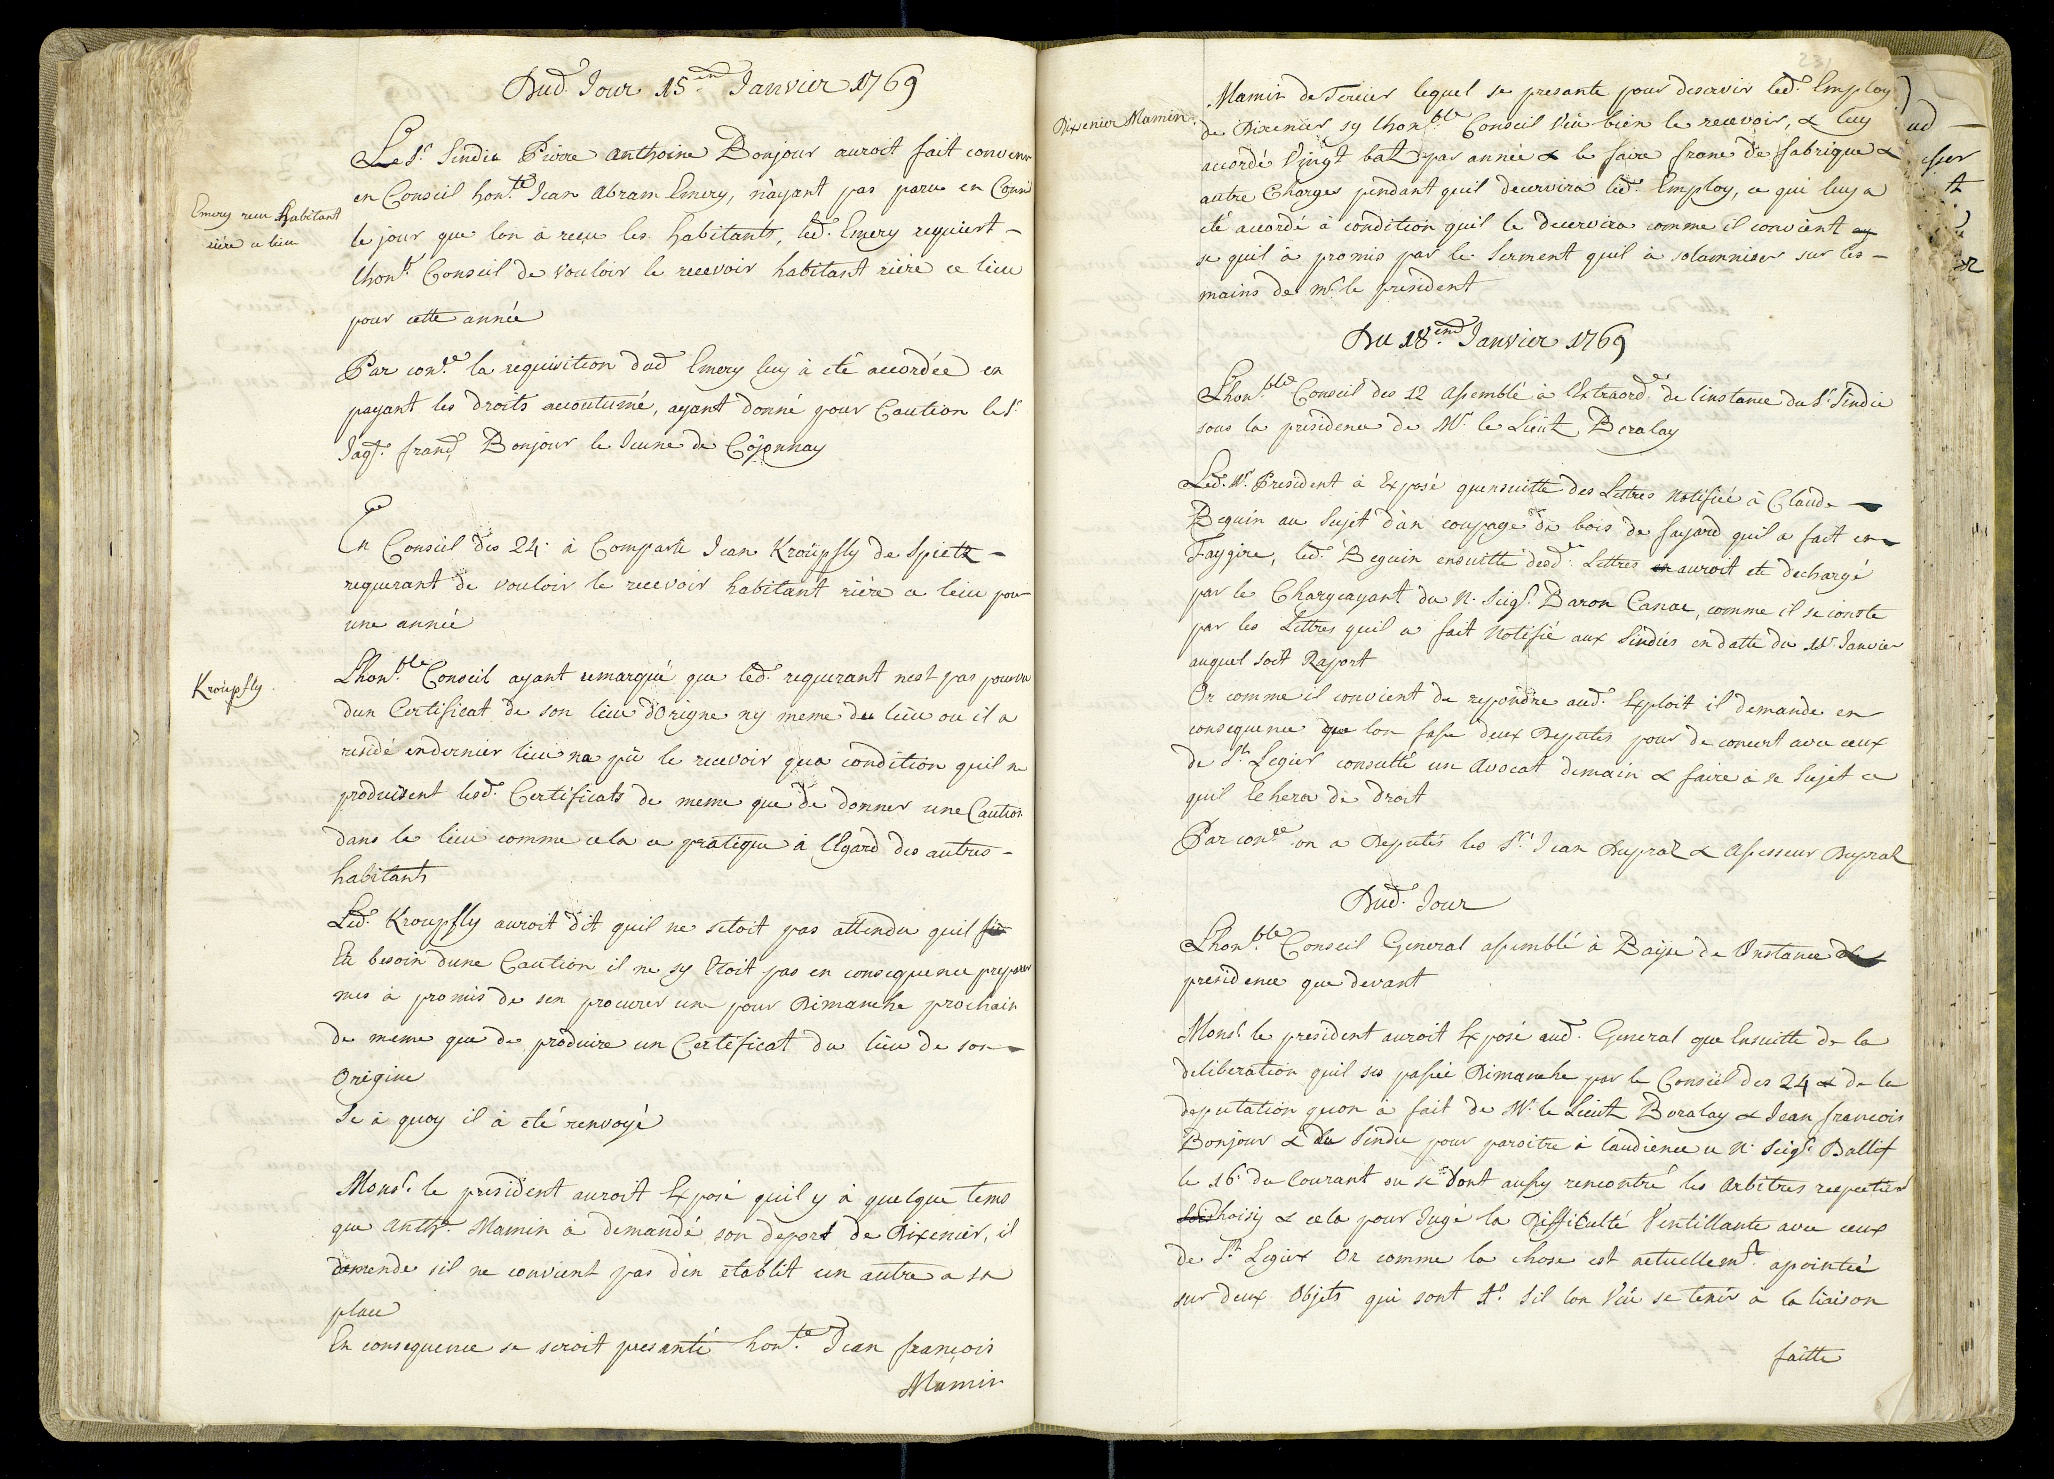 Dud. Jour 15.me Janvier 1769
Le Sr. Sindic Pierre Anthoine Bonjour auroit fait convenir
en Conseil hon.te Jean Abram Emery, n'ayant pas paru en Conseil
Emery reçu habitant
rière ce lieu
le jour que lon à reçu les habitants, led. Emery requiert
lhon. Conseil de vouloir le recevoir habitant rière ce lieu
pour cette année
Par con.ce la requisition dud Emery luy à eté accordée en
payant les droits accoutumé, ayant donné pour Caution le Sr.
Jaq. franç Bonjour le Jeune de Cojonnay
En Conseil des 24. à Comparu Jean Kroüpfly de Spietz
requerant de vouloir le recevoir habitant rière ce lieu pour
une année
Kroüpfly.
Lhon.ble Conseil ayant remarqué que led. requerant nest pas pourvu
dun Certificat de son lieu dOrigne ny meme du lieu ou il a
residé endernier lieu na pû le recevoir qua condition quil ne
produisent lesd. Certificats de meme que de donner une Caution
dans le lieu comme cela ce pratique à lEgard des autres
habitants
Led. Kroupfly auroit dit quil ne setoit pas attendu quil
Eu besoin dune Caution il ne sy Etoit pas en consequence preparer
mes à promis de sen procurer une pour Dimanche prochain
de meme que de produire un Certificat du lieu de son
Origine
Se à quoy il à eté renvoyé
Mons.r le president auroit Exposé quil y à quelque tems
que Anth.e Mamin à demandé son deport de Dixenier, il
demende sil ne convient pas dën etablit un autre a sa
place
En consequence se seroit presanté hon.te Jean françois
Mamin
231
Dixenier Mamin.
Mamin de Tercier lequel se presante pour deservir led. Employ
de Dixenier sy lhon.ble Conseil veu bien le recevoir, & luy
accordé Vingt batz par année & le faire franc de fabrique &
autre Charges pendant quil decervira led. Employ, ce qui luy a
eté accordé à condition quil le decervira comme il convient
se quil à promis par le Serment quil à solamniser sur les
mains de mr. le president
Du 18.eme Janvier 1769
Lhon.ble Conseil des 12 Assemblé à lExtraord.re de linstance du Sr. Sindic
sous la presidence de Mr. le Lieut. Boralay
Led. Mr. President à Exposé quensuitte des Lettres Notifiée à Claude
Beguin au Sujet dun coupage de bois de fayard quil a fait en
Faygire, led. Beguin ensuitte desd.es Lettres auroit eté dechargé
par le Chargeayant du N. Seigr. Baron Canac, comme il se conste
par les Lettres quil a fait Notifié aux Sindics en datte du 10e. Janvier
auquel soit Raport
Or comme il convient de repondre aud. Exploit il demande en
consequence que lon fasse deux Deputés pour de concert avec ceux
de St. Legier consulté un Avocat demain & faire à se Sujet ce
quil le hera de droit
Par con.ce on a Deputés les Srs. Jean Dupraz & Assesseur Dupraz
Dud. Jour
Lhon.ble Conseil General assemblé à Baisse de Instance &
presidence que devant
Mons.r le president auroit Exposé aud. General que Ensuitte de la
deliberation quil ses passée Dimanche par le Conseil des 24 & de la
deputation quon à fait de Mr. le Lieut. Boralay & Jean françois
Bonjour & du Sindic pour paroitre à laudience u N. Seigr. Ballif
le 16e. du Courant ou se sont aussy rencontré les Arbitres respectivs
choisy & cela pour Jugé la Difficulté Ventillante avec ceux
de St. Legier Or comme la chose est actuellem.t apointée
sur deux Objets qui sont 1°. Sil lon Veü se tenir à la liaison
faitte